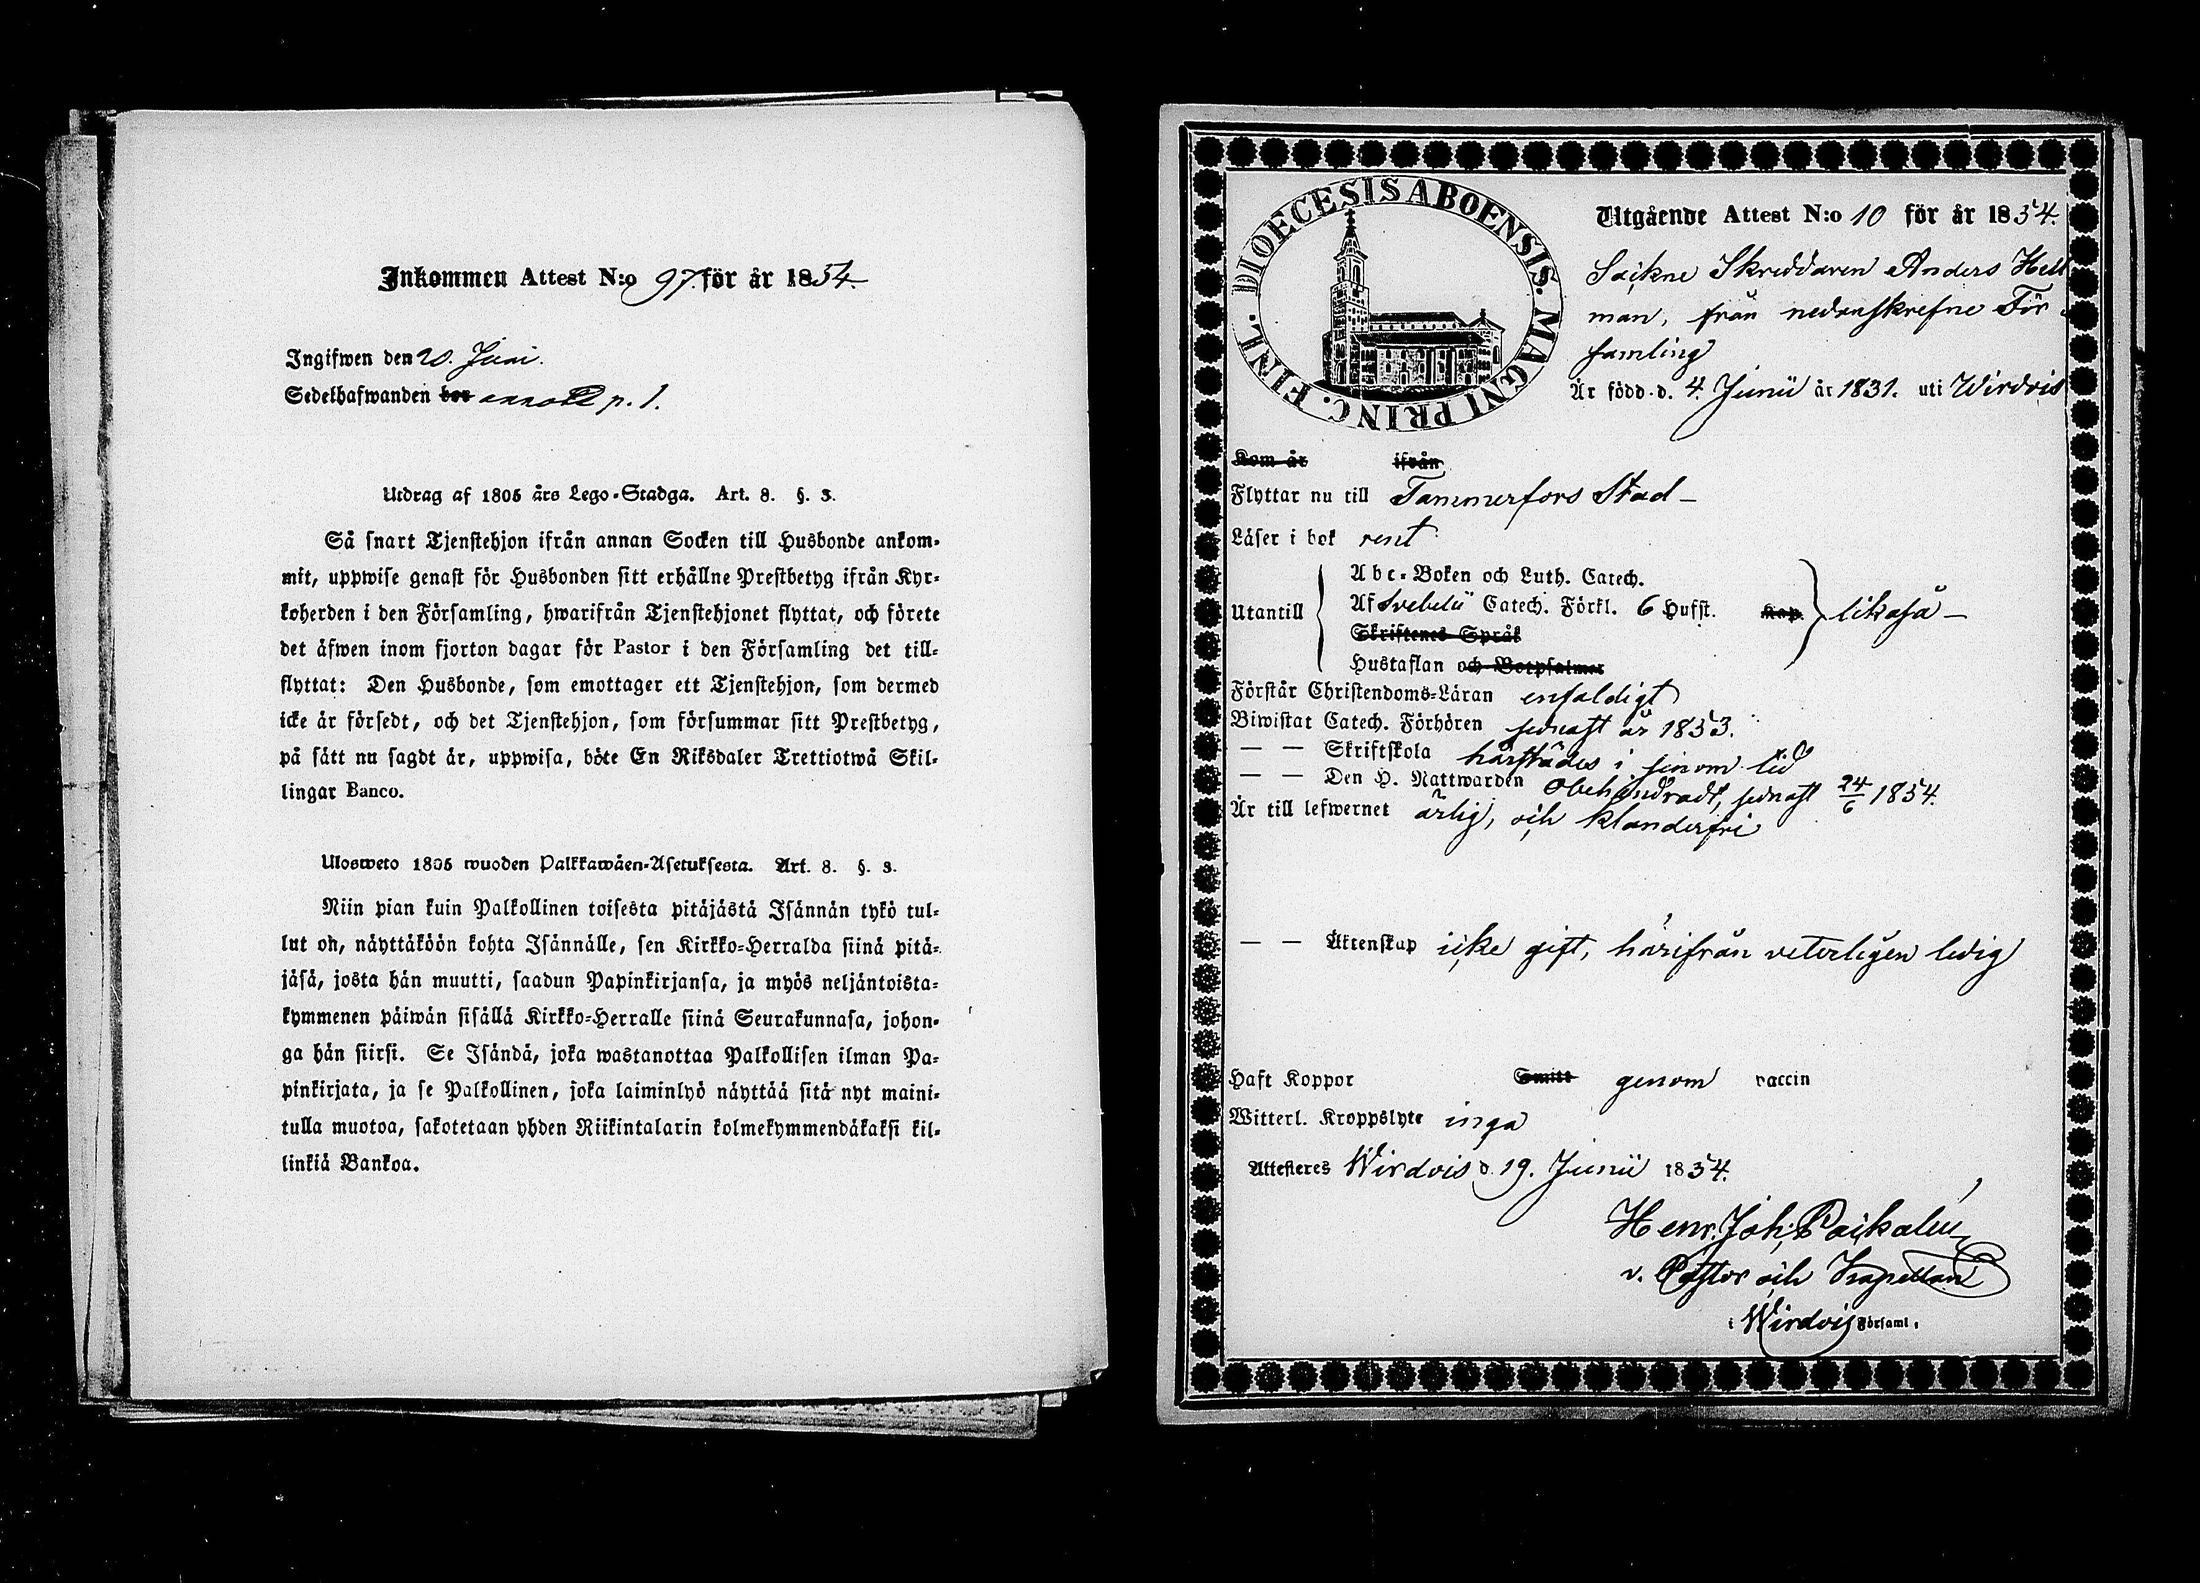 Inkommen Attest N:o 97. för år 1854.
Ingifwen den 20. Juni.
Sedelhafwanden bor annott p. 1.
Utdrag af 1805 års Lego-Stadga. Art. 8. §. 3.
Så snart Tjenstehjon ifrån annan Socken till Husbonde ankom-
mit, uppwise genast för Husbonden sitt erhållne Prestbetyg ifrån Kyr-
koherden i den Församling, hwarifrån Tjenstehjonet flyttat, och förete
det äfwen inom fjorton dagar för Pastor i den Församling det till-
flyttat: Den Husbonde, som emottager ett Tjenstehjon, som dermed
icke är försedt, och det Tjenstehjon, som försummar sitt Prestbetyg,
på sätt nu sagdt är, uppwisa, böte En Riksdaler Trettiotwå Skil-
lingar Banco.
Ulosweto 1805 wuoden Palkkawäen-Asetuksesta. Art. 8. §. 3.
Niin pian kuin Palkollinen toisesta pitäjästä Isännän tykö tul-
lut on, näyttäköön kohta Isännälle, sen Kirkko-Herralda siinä pitä-
jäsä, josta hän muutti, saadun Papinkirjansa, ja myös neljäntoista-
kymmenen päiwän sisällä Kirkko-Herralle siinä Seurakunnasa, johon-
ga hän siirsi. Se Isändä, joka wastanottaa Palkollisen ilman Pa-
pinkirjata, ja se Palkollinen, joka laiminlyö näyttää sitä nyt maini-
tulla muotoa, sakotetaan yhden Riikintalarin kolmekymmendäkaksi kil-
linkiä Bankoa.
DIOECESIS ABOENSIS. MAGNI PRINC. FINL.
Utgående Attest N:o 10 för år 1854.
Sockne Skreddaren Anders Hell
man, från nedanskrefne För
samling
Är född d. 4. Junii år 1831. uti Wirdois
Kom år ifrån
Flyttar nu till Tammerfors Stad –
Läser i bok rent
Abc-Boken och Luth. Catech.
Utantill Af Svebelii Catech. Förkl. 6 Hufst. Kap. likaså –
Skriftenes Språk
Hustaflan och Botpsalmer
Förstår Christendoms-Läran enfaldigt
Biwistat Catech. Förhören senast år 1853.
— — Skriftskola härstädes i sinom tid
— — Den H. Nattwarden obehindradt, senast 24/6 1854.
Är till lefwernet ärlig, och klanderfri
— — Äktenskap icke gift, härifrån veterligen ledig
Haft Koppor Smitt genom vaccin
Witterl. Kroppslyte inga
Attesteres Wirdois d. 19. Junii 1854.
Henr. Joh. Paikalén
v. Pastor och Kapellan
i Wirdois Församl.